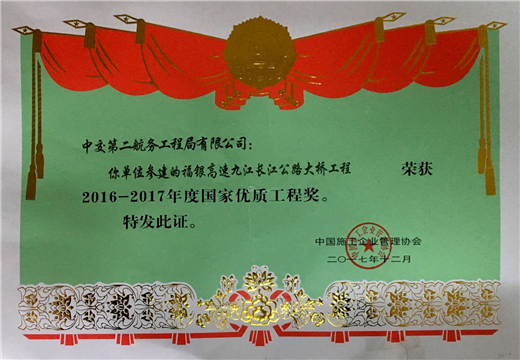 中交第二航务工程局有限公司：
你单位参建的福银高速九江长江公路大桥工程 荣获
2016-2017年度国家优质工程奖。
特发此证。
中国施工企业管理协会
二〇一七年十二月